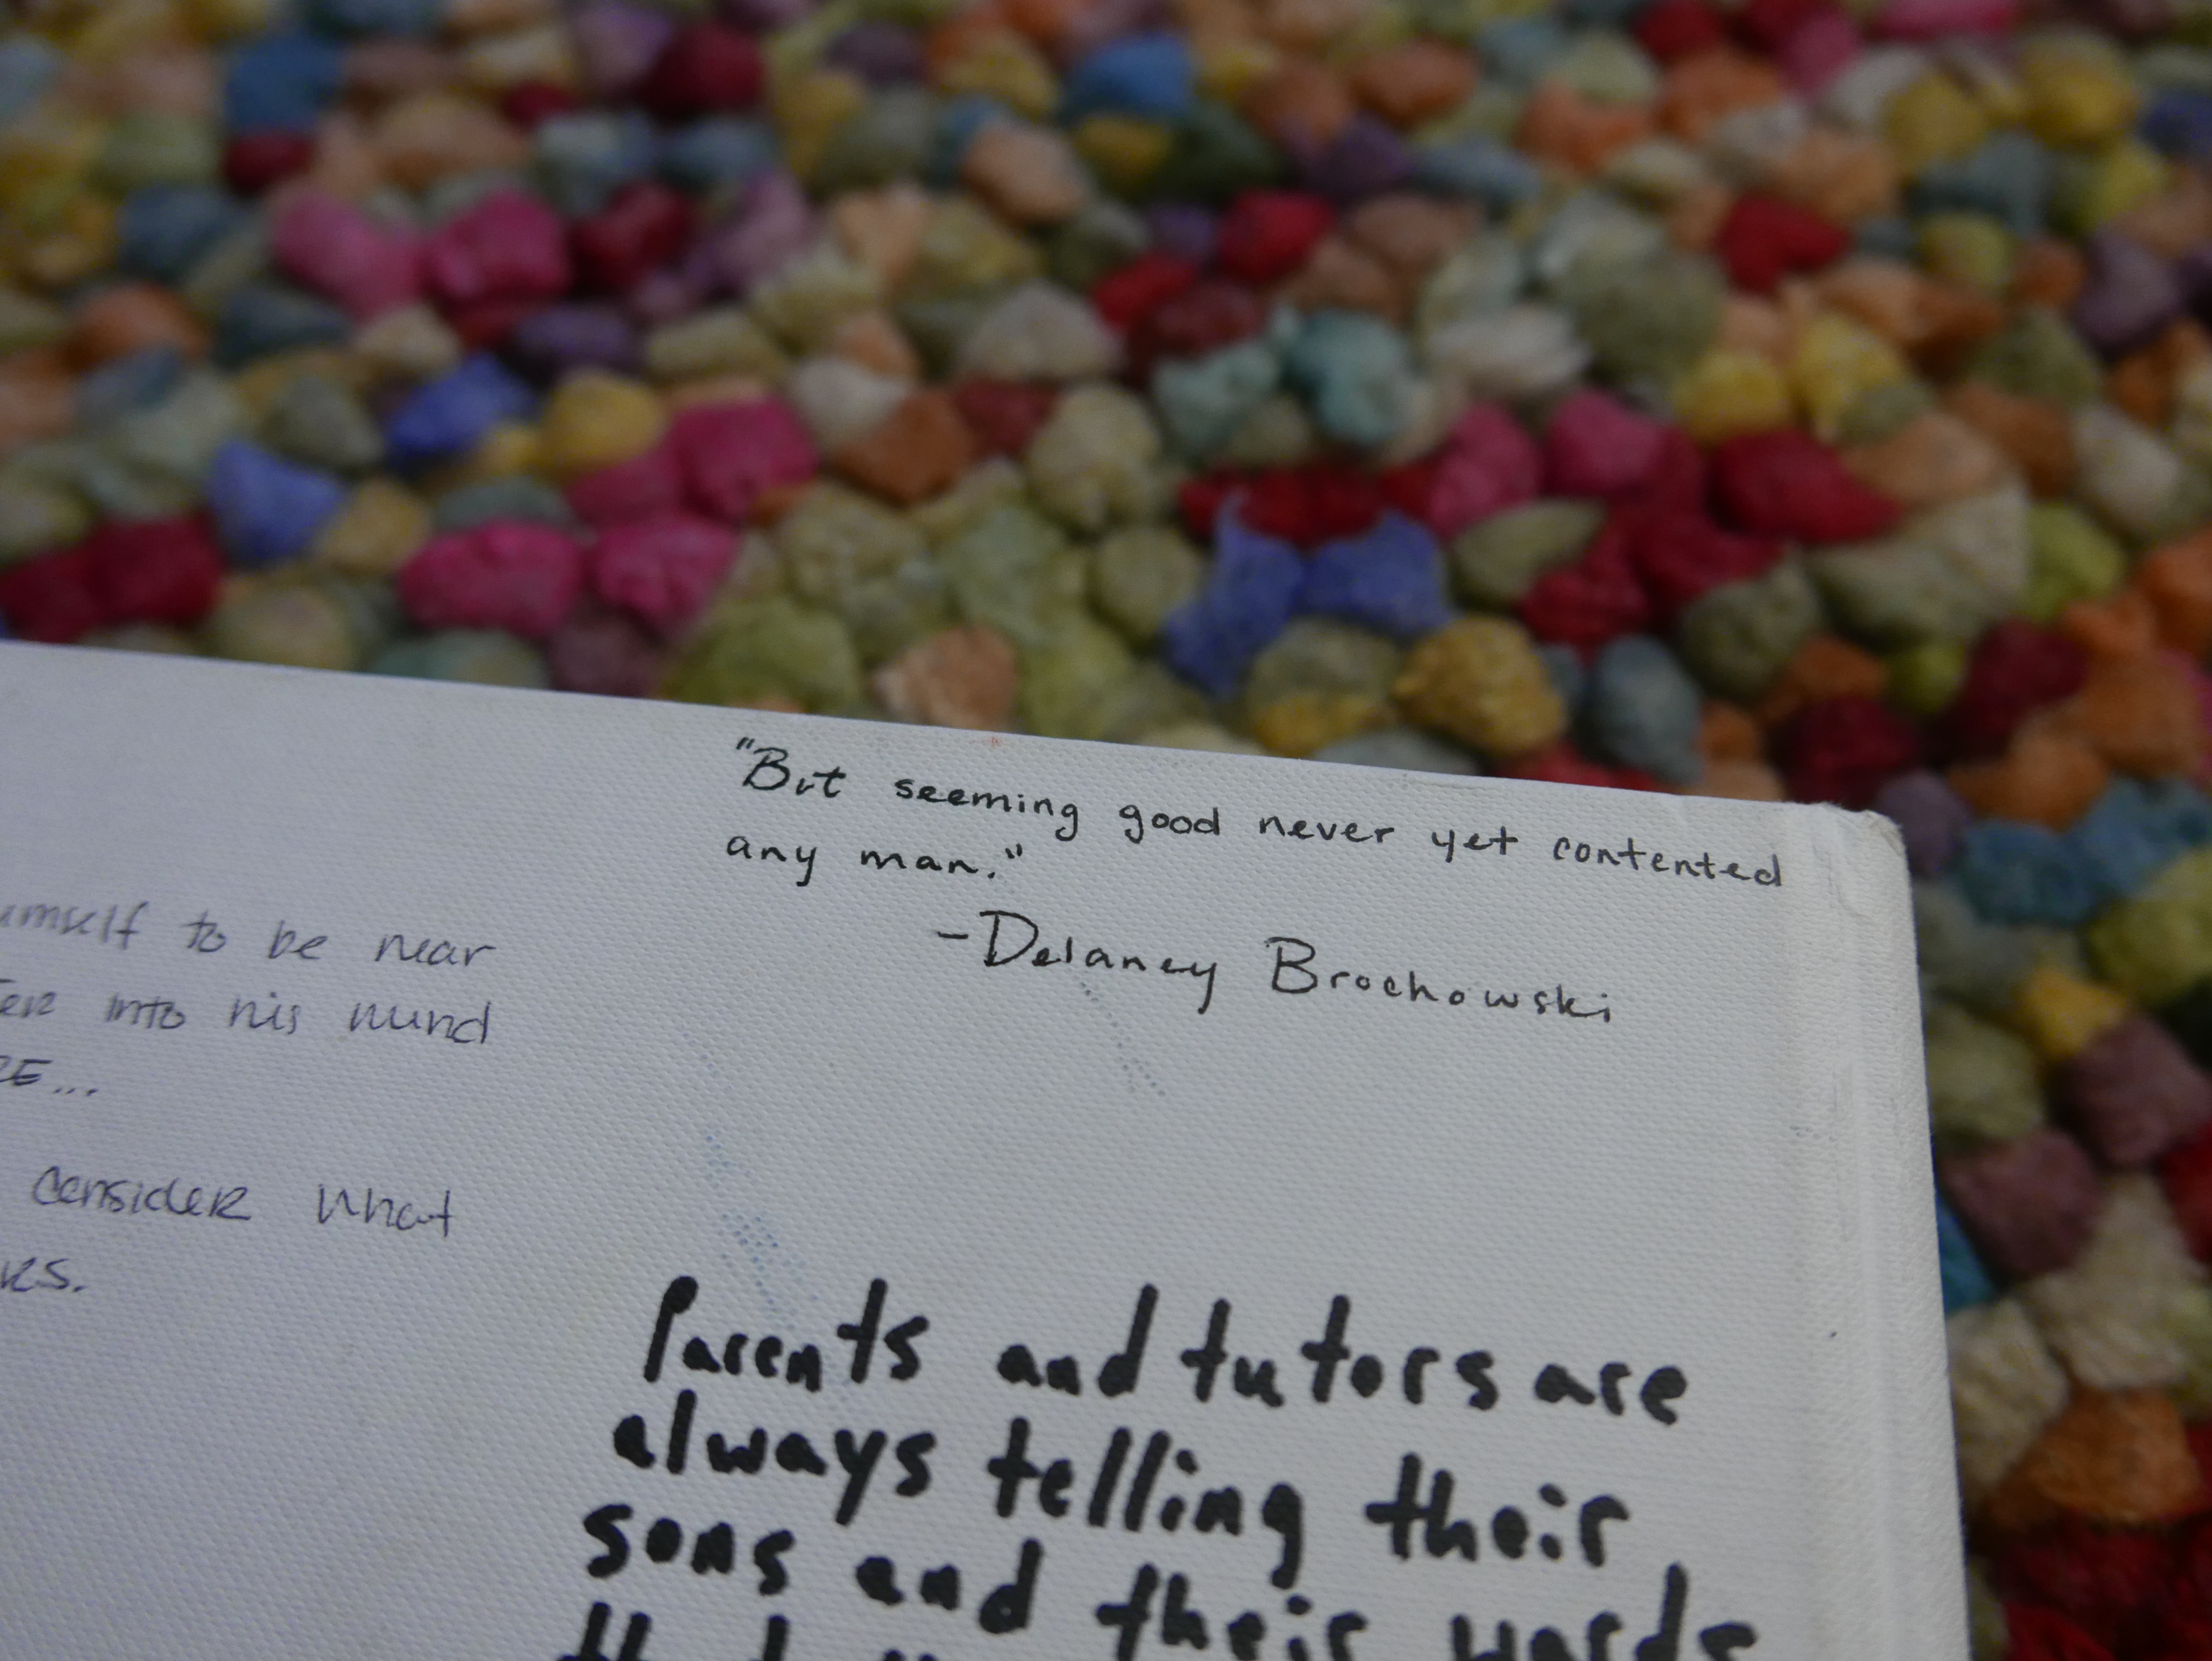 "But seeming good never yet contented
any man."
-Delaney Brochowski
to be near
into his mind
...
consider what
Parents and tutors are
always telling their
sons and their wards